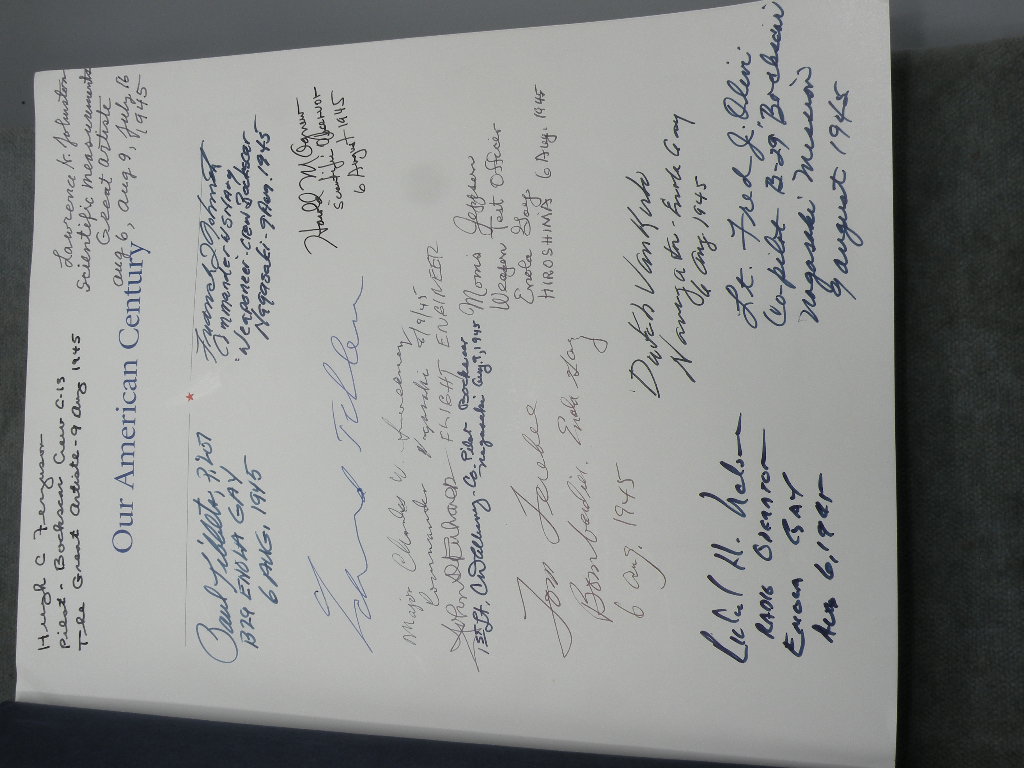 Lawrence H. Johnston
Scientific Measurements
Great Artiste
Aug 6, Aug 9, July 16
1945
Hugh C Ferguson
Pilot - Bockscar Crew C-13
The Great Artiste - 9 Aug 1945
Our American Century
Paul Tibbets, Pilot
B29 ENOLA GAY
6 AUG, 1945
Commander USNavy
Weaponeer Bockscar
Nagasaki 9 Aug. 1945
Harold M Agnew
Scientific Observor
6 August 1945
Major Charles W. Sweeney
Commander Nagasaki 8/9/45
FLIGHT ENGINEER
1st Lt. Co-Pilot Bockscar
Nagasaki Aug 9, 1945
Morris Jeppson
Weapon Test Officer
Enola Gay
HIROSHIMA 6 Aug. 1945
Tom Ferebee
Bombardier. Enola Gay
6 Aug. 1945
Dutch VanKirk
Navigator - Enola Gay
6 Aug 1945
H. Nelson
RADIO OPERATOR
ENOLA GAY
AUG 6, 1945
Lt. Fred J. Olivi
Co-pilot B-29 "Bockscar"
Nagasaki Mission
9 August 1945